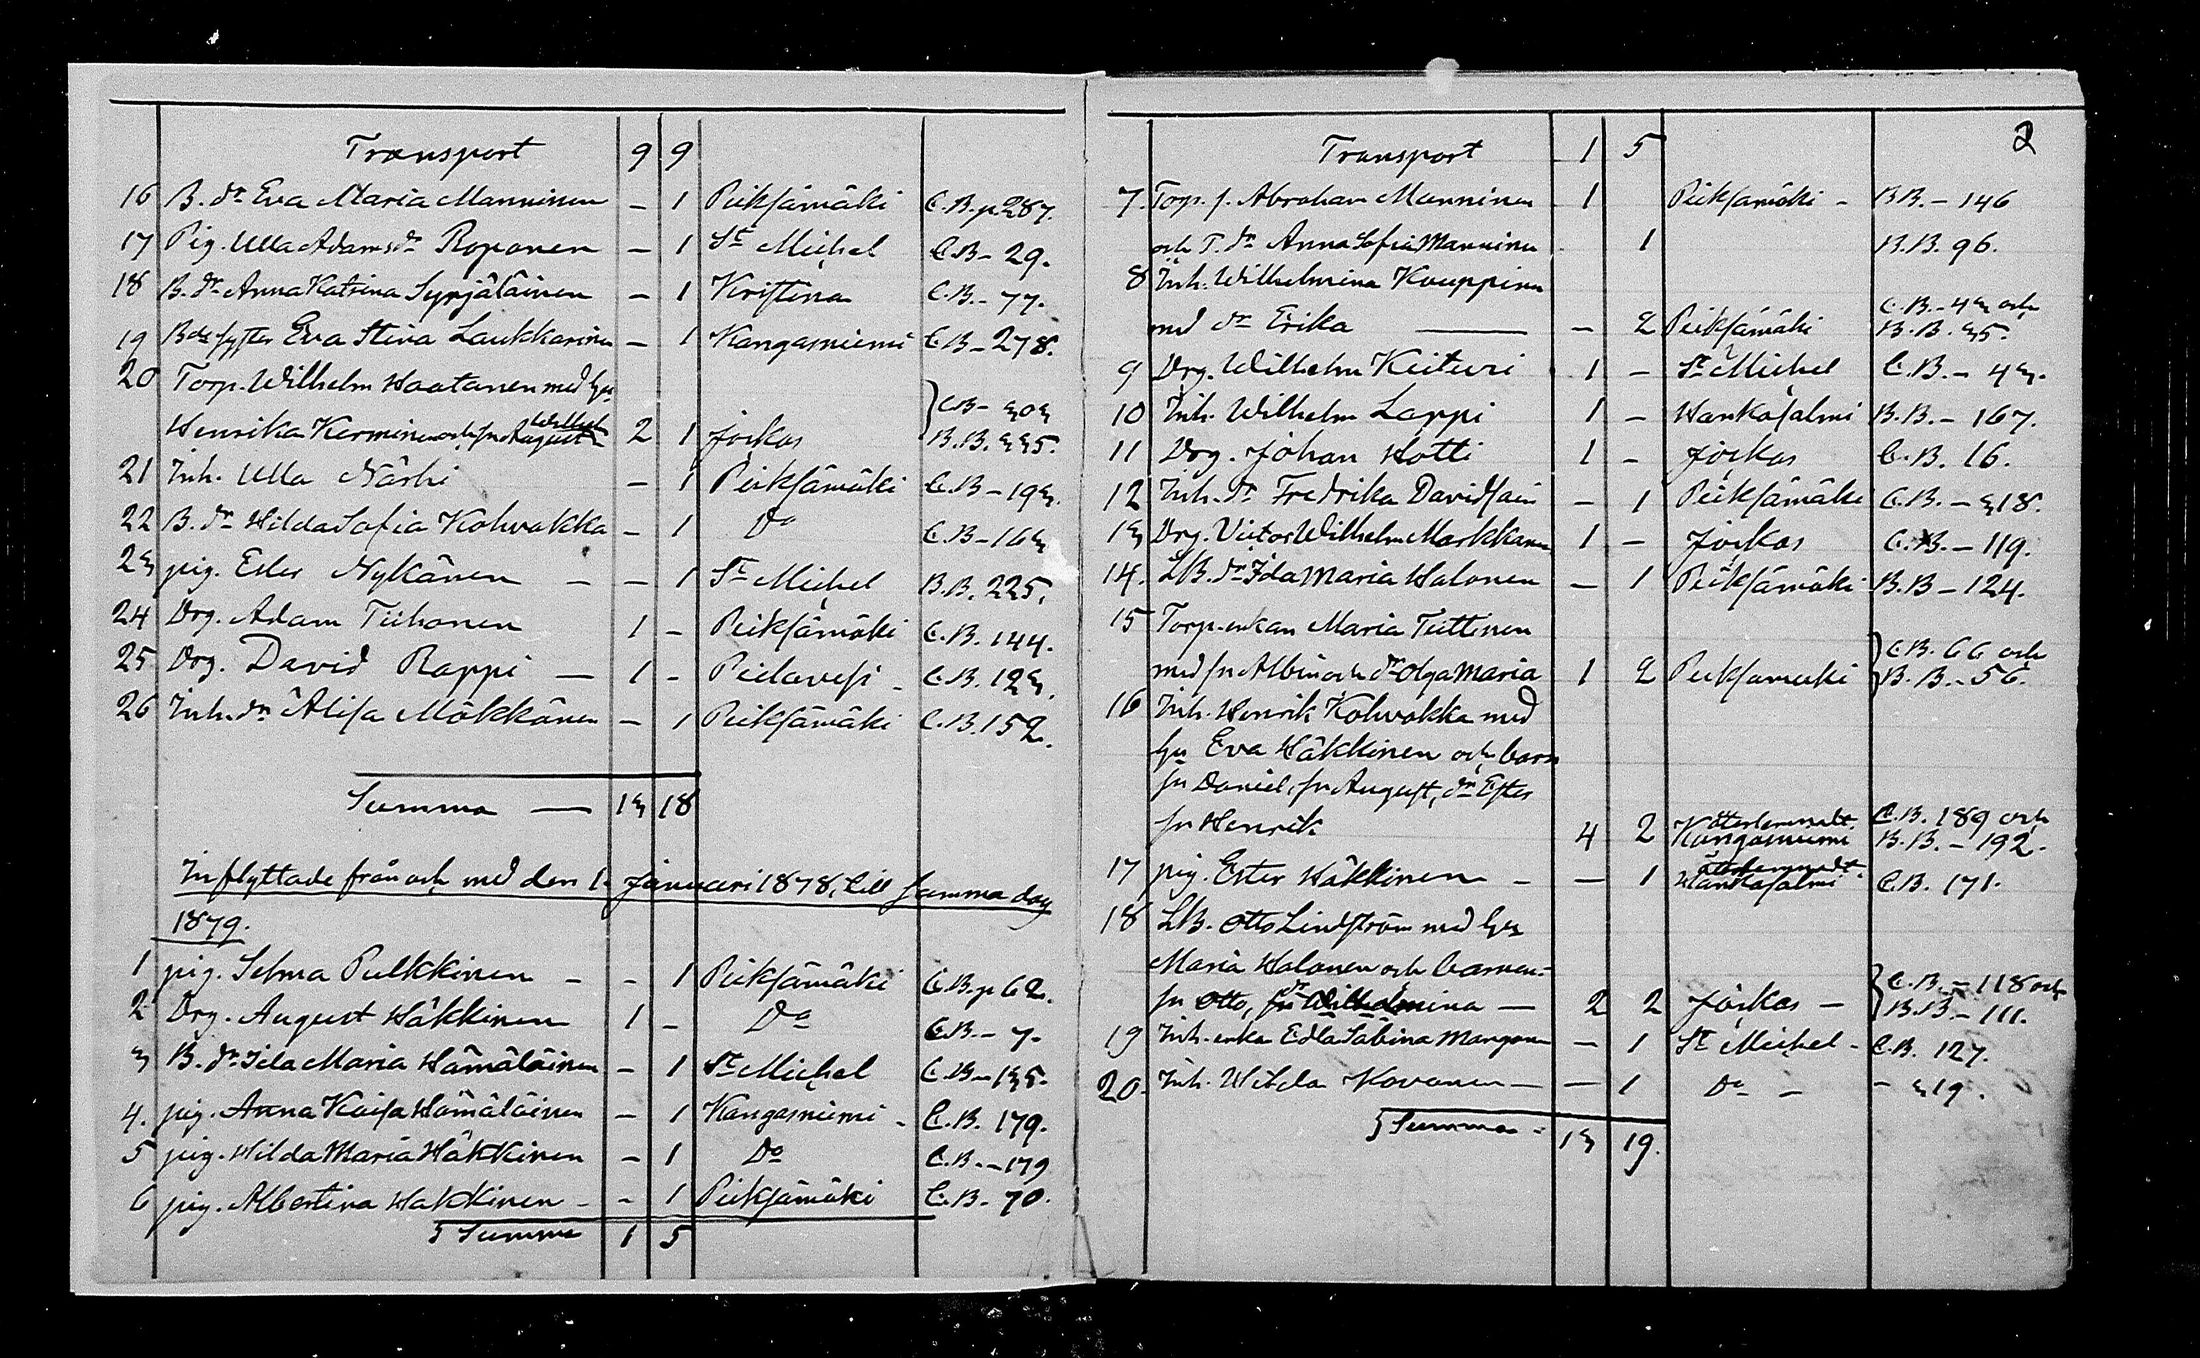 Transport 9 9
16 B. dr Eva Maria Manninen – 1 Pieksämäki C.B. p 287.
17 Pig. Ulla Adamsdr Roponen – 1 St Michel C.B – 29.
18 B. dr Anna Katrina Syrjäläinen – 1 Kristina C.B. – 77.
19 Bde syster Eva Stina Laukkarinen – 1 Kangasniemi C.B – 278.
20 Torp. Wilhelm Haatanen med hu
Henrika Kerminen och sn August Wilhelm 2 1 Jockas C.B – 303 B.B. 335.
21 Inh. Ulla Närhi – 1 Pieksämäki C.B – 193.
22 B. dr Hilda Sofia Kohvakka – 1 Do C.B – 163
23 pig. Ester Nykänen – – 1 St Michel B.B. 225.
24 Drg. Adam Tiihonen 1 – Pieksämäki C.B. 144.
25 Drg. David Rappi – 1 – Pielavesi – C.B. 123.
26 Inh. dr Alisa Mökkönen – 1 Pieksämäki C.B. 152.
Summa — 13 18
Inflyttade från och med den 1. Januari 1878, till samma dag
1879.
1 pig. Selma Pulkkinen – – 1 Pieksämäki C.B. p 62.
2 Drg. August Häkkinen 1 – Do C.B. – 7.
3 B. dr Ida Maria Hämäläinen – 1 St Michel C.B – 135.
4. pig. Anna Kaisa Hämäläinen – 1 Kangasniemi – C.B. 179.
5 pig. Hilda Maria Häkkinen – 1 Do C.B. – 179
6 pig. Albertina Hakkinen – – 1 Pieksämäki C.B – 70.
Summa 1 5
2
Transport 1 5
7. Torp. s. Abraham Manninen 1 Pieksamäki – B.B. – 146
och T. dr Anna Sofia Manninen 1 B.B. 96.
8 Inh. Wilhelmina Kauppinen
med dr Erika — – 2 Pieksämäki C.B. – 43 och B.B. 35.
9 Drg. Wilhelm Keituri 1 – St Michel C.B. – 43.
10 Inh. Wilhelm Lappi 1 – Hankasalmi B.B. – 167.
11 Drg. Johan Hotti 1 – Jockas C.B. 16.
12 Inh. dr Fredrika Davidsain – 1 Pieksämäki C.B. – 318.
13 Drg. Victor Wilhelm Markkanen 1 – Jockas C.B. – 119.
14. LB. dr Ida Maria Halonen – 1 Pieksämäki B.B – 124.
15 Torp. enkan Maria Tuttinen
med sn Albin och dr Olga Maria 1 2 Pieksamäki C.B. 66 och B.B. – 56.
16 Inh. Henrik Kohvakka med
hu Eva Häkkinen och barn
sn Daniel, sn August, dr Ester
sn Henrik 4 2 Kangasniemi C.B. 189 och B.B. – 192.
17 pig. Ester Häkkinen – – 1 Hankasalmi C.B. 171.
18 LB. Otto Lindström med hu
Maria Halonen och barnen
sn Otto, dr Wilhelmina — 2 2 Jockas – C.B. – 118 och B.B. – 111.
19 Inh. enka Edla Sabina Manganen – 1 St Michel – C.B. 127.
20. Inh. Hilda Kovanen – – 1 Do – – 319.
Summa – 13 19.